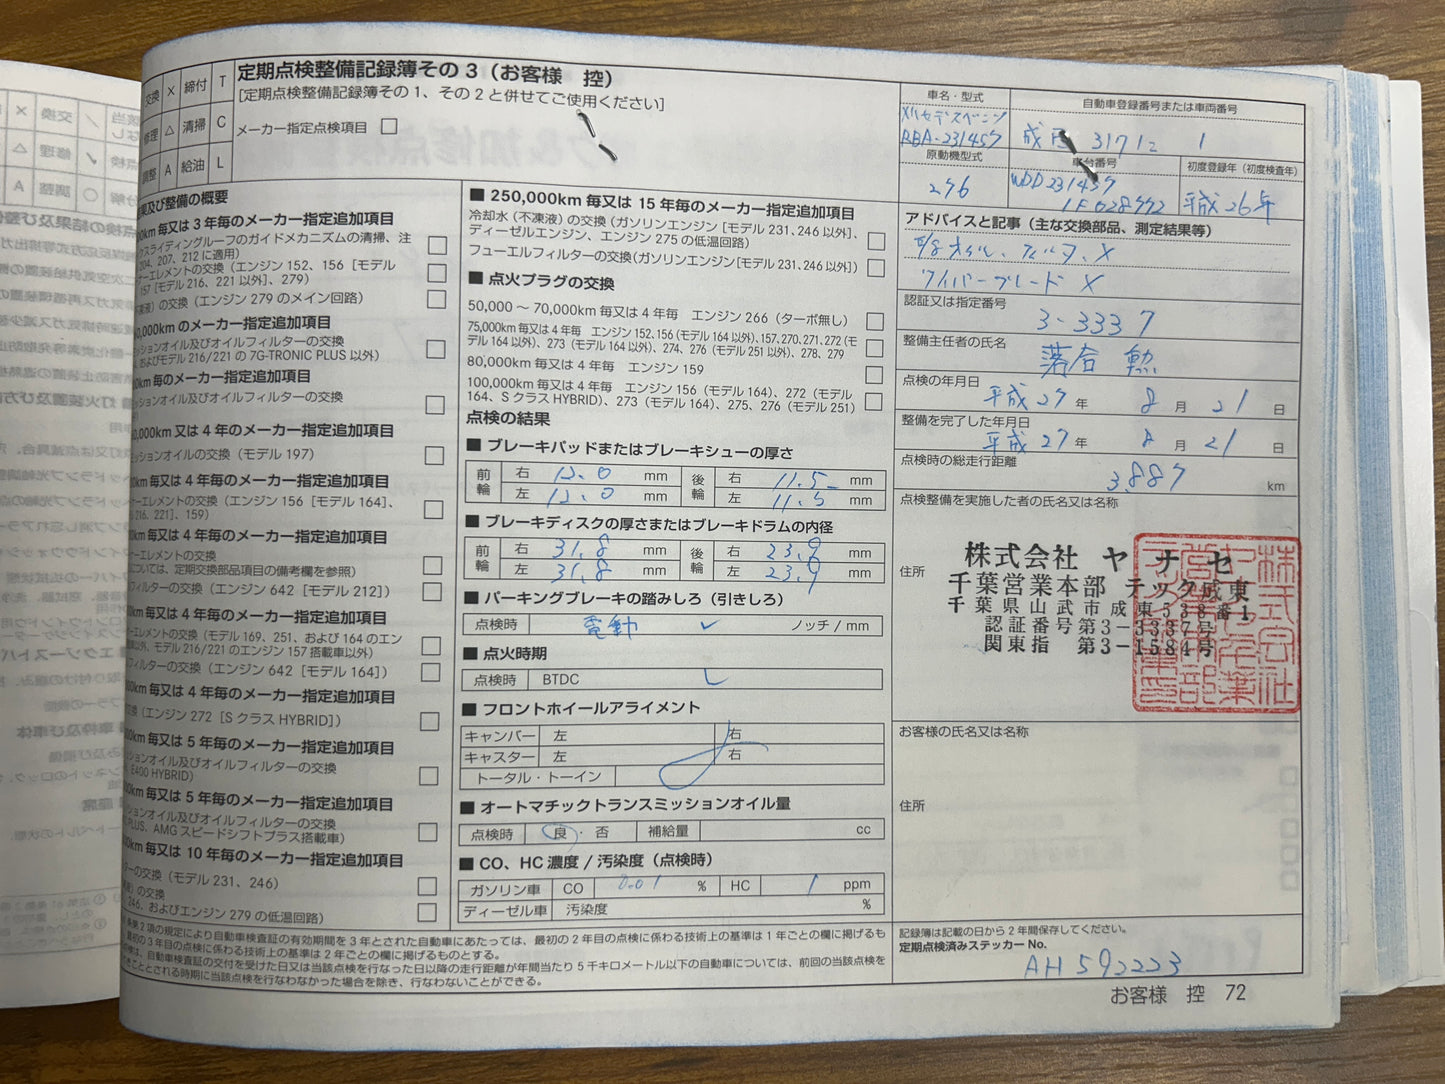 交換 × 締付 T
修理 △ 清掃 C
調整 A 給油 L
定期点検整備記録簿その3（お客様 控）
[定期点検整備記録簿その1、その2と併せてご使用ください]
メーカー指定点検項目 □
果及び整備の概要
0km毎又は3年毎のメーカー指定追加項目
スライディングルーフのガイドメカニズムの清掃、注
204、207、212に適用）
ナーエレメントの交換（エンジン152、156［モデル
157［モデル216、221以外］、279）
液）の交換（エンジン279のメイン回路）
0,000kmのメーカー指定追加項目
ッションオイル及びオイルフィルターの交換
およびモデル216/221の7G-TRONIC PLUS以外）
km毎のメーカー指定追加項目
ッションオイル及びオイルフィルターの交換
0,000km又は4年毎のメーカー指定追加項目
ッションオイルの交換（モデル197）
km毎又は4年毎のメーカー指定追加項目
ーエレメントの交換（エンジン156［モデル164］、
216、221］、159）
km毎又は4年毎のメーカー指定追加項目
ナーエレメントの交換
については、定期交換部品項目の備考欄を参照）
フィルターの交換（エンジン642［モデル212］）
km毎又は4年毎のメーカー指定追加項目
エレメントの交換（モデル169、251、および164のエン
以外、モデル216/221のエンジン157搭載車以外）
フィルターの交換（エンジン642［モデル164］）
km毎又は4年毎のメーカー指定追加項目
交換（エンジン272［SクラスHYBRID］）
km毎又は5年毎のメーカー指定追加項目
ッションオイル及びオイルフィルターの交換
E400 HYBRID）
km毎又は5年毎のメーカー指定追加項目
ションオイル及びオイルフィルターの交換
PLUS、AMGスピードシフトプラス搭載車）
0km毎又は10年毎のメーカー指定追加項目
ーの交換（モデル231、246）
液）の交換
246、およびエンジン279の低温回路）
■ 250,000km毎又は15年毎のメーカー指定追加項目
冷却水（不凍液）の交換（ガソリンエンジン［モデル231、246以外］、
ディーゼルエンジン、エンジン275の低温回路）
フューエルフィルターの交換（ガソリンエンジン［モデル231、246以外］）
■ 点火プラグの交換
50,000～70,000km毎又は4年毎 エンジン266（ターボ無し）
75,000km毎又は4年毎 エンジン152、156（モデル164以外）、157、270、271、272（モ
デル164以外）、273（モデル164以外）、274、276（モデル251以外）、278、279
80,000km毎又は4年毎 エンジン159
100,000km毎又は4年毎 エンジン156（モデル164）、272（モデル
164、SクラスHYBRID）、273（モデル164）、275、276（モデル251）
点検の結果
■ ブレーキパッドまたはブレーキシューの厚さ
前輪 右 12.0 mm 後輪 右 11.5 mm
左 12.0 mm 左 11.5 mm
■ ブレーキディスクの厚さまたはブレーキドラムの内径
前輪 右 31.8 mm 後輪 右 23.9 mm
左 31.8 mm 左 23.9 mm
■ パーキングブレーキの踏みしろ（引きしろ）
点検時 電動 ✓ ノッチ / mm
■ 点火時期
点検時 BTDC
■ フロントホイールアライメント
キャンバー 左 右
キャスター 左 右
トータル・トーイン
■ オートマチックトランスミッションオイル量
点検時 良・否 補給量 cc
■ CO、HC濃度 / 汚染度（点検時）
ガソリン車 CO 0.01 % HC 1 ppm
ディーゼル車 汚染度 %
条第2項の規定により自動車検査証の有効期間を3年とされた自動車にあたっては、最初の2年目の点検に係わる技術上の基準は1年ごとの欄に掲げるも
最初の3年目の点検に係わる技術上の基準は2年ごとの欄に掲げるものとする。
検は、自動車検査証の交付を受けた日又は当該点検を行なった日以降の走行距離が年間当たり5千キロメートル以下の自動車については、前回の当該点検を
ごととされる時期に当該点検を行なわなかった場合を除き、行なわないことができる。
車名・型式
メルセデスベンツ
RBA-231457
自動車登録番号または車両番号
3171
原動機型式
276
車台番号
WDD231457
1F028992
初度登録年（初度検査年）
平成26年
アドバイスと記事（主な交換部品、測定結果等）
E/g オイル、フィルタ、X
ワイパーブレード X
認証又は指定番号
3-3337
整備主任者の氏名
落合 勲
点検の年月日
平成27年 8月21日
整備を完了した年月日
平成27年 8月21日
点検時の総走行距離
3,887 km
点検整備を実施した者の氏名又は名称
株式会社 ヤナセ
住所
千葉営業本部 テックス成東
千葉県山武市成東538番1
認証番号第3-3337号
関東指 第3-1584号
お客様の氏名又は名称
住所
記録簿は記載の日から2年間保存してください。
定期点検済みステッカーNo.
AH592223
お客様 控 72